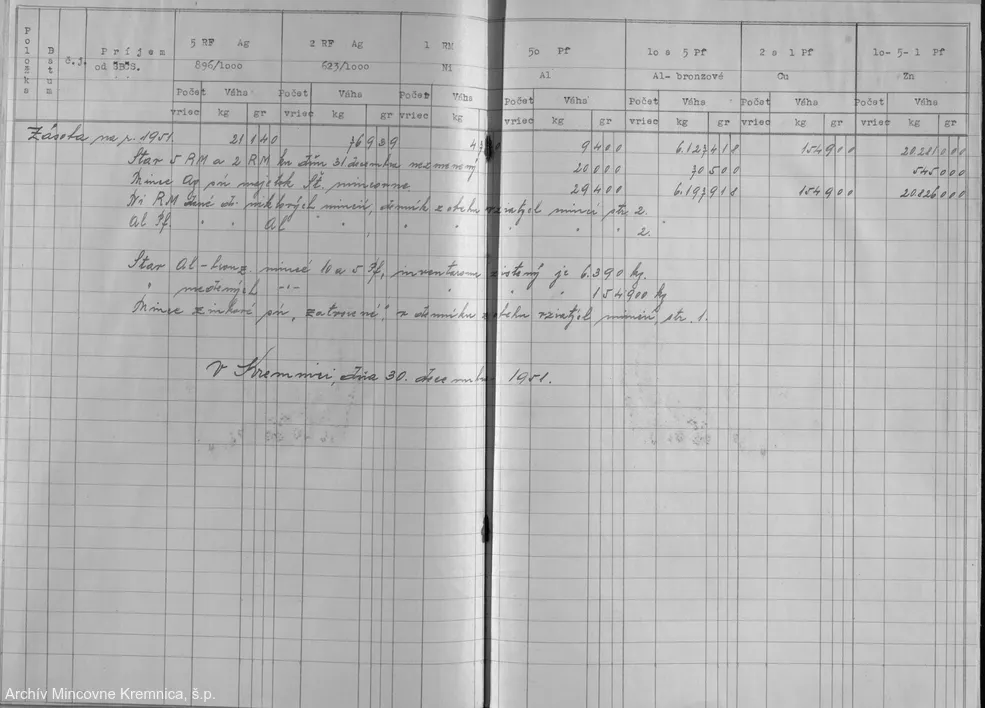 Položka Dátum č.j. Príjem od ŠBČS. 5 RF Ag 896/1000 2 RF Ag 623/1000 1 RM Ni 50 Pf Al 10 a 5 Pf Al- bronzové 2 a 1 Pf Cu 10- 5- 1 Pf Zn
Počet vriec Váha kg gr Počet vriec Váha kg gr Počet vriec Váha kg Počet vriec Váha kg gr Počet vriec Váha kg gr Počet vriec Váha kg gr Počet vriec Váha kg gr
Zásoba na r. 1951. 21 140 76 939 9 400 6.127 418 154 900 20.281 000
Stav 5 RM a 2 RM ku dňu 31 decembra nezmenený 20 000 70 500 545 000
Mince Ag sú majetok Št. mincovne. 29 400 6.197 918 154 900 20.826 000
Ni RM niklových mincí, denník z obehu vziatych mincí str. 2.
Al Pf. " " Al " " " " " 2.
Stav Al-bronz. mincí 10 a 5 Pf, inventarom zistený je 6.390 kg.
" medených -"- " " " 154 900 kg
Mince zinkové sú „zatrocené“, v denníku z obehu vziatych mincí, str. 1.
V Kremnici, dňa 30. decembra 1951.
Archív Mincovne Kremnica, š.p.